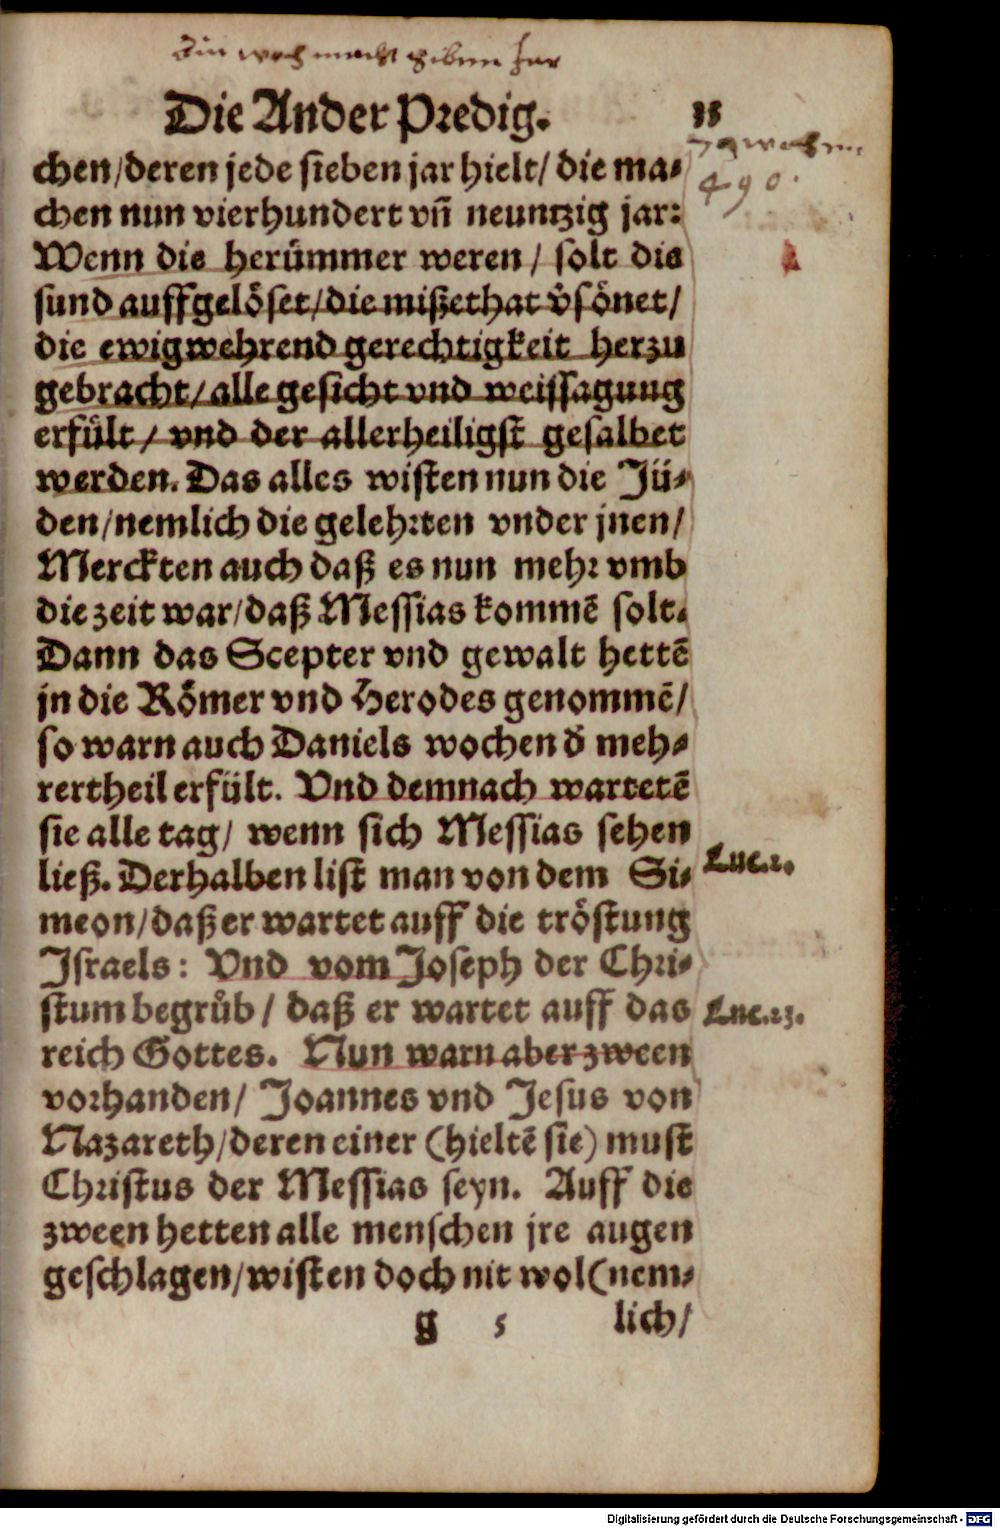 Ein woch macht siben Jar
Die Ander Predig.
chen/deren jede sieben jar hielt/ die ma⸗
chen nun vierhundert vñ neuntzig jar:
490.
Wenn die herümmer weren / solt die
sund auffgelöset/die mißethat v̈sönet/
die ewigwehrend gerechtigkeit herzu
gebracht/alle gesicht vnd weissagung
erfült / vnd der allerheiligst gesalbet
werden. Das alles wisten nun die Jü⸗
den/nemlich die gelehrten vnder jnen/
Merckten auch daß es nun mehr vmb
die zeit war/daß Messias kommẽ solt.
Dann das Scepter vnd gewalt hettẽ
jn die Römer vnd Herodes genommẽ/
so warn auch Daniels wochen d̈ meh⸗
rertheil erfült. Vnd demnach wartetẽ
sie alle tag/ wenn sich Messias sehen
ließ. Derhalben list man von dem Si⸗
Luc.2.
meon/daß er wartet auff die tröstung
Israels: Vnd vom Joseph der Chri⸗
stum begrůb / daß er wartet auff das
Luc.23.
reich Gottes. Nun warn aber zween
vorhanden/ Joannes vnd Jesus von
Nazareth/deren einer (hieltẽ sie) must
Christus der Messias seyn. Auff die
zween hetten alle menschen jre augen
geschlagen/wisten doch nit wol(nem⸗
g 5 lich/
Digitalisierung gefördert durch die Deutsche Forschungsgemeinschaft - DFG